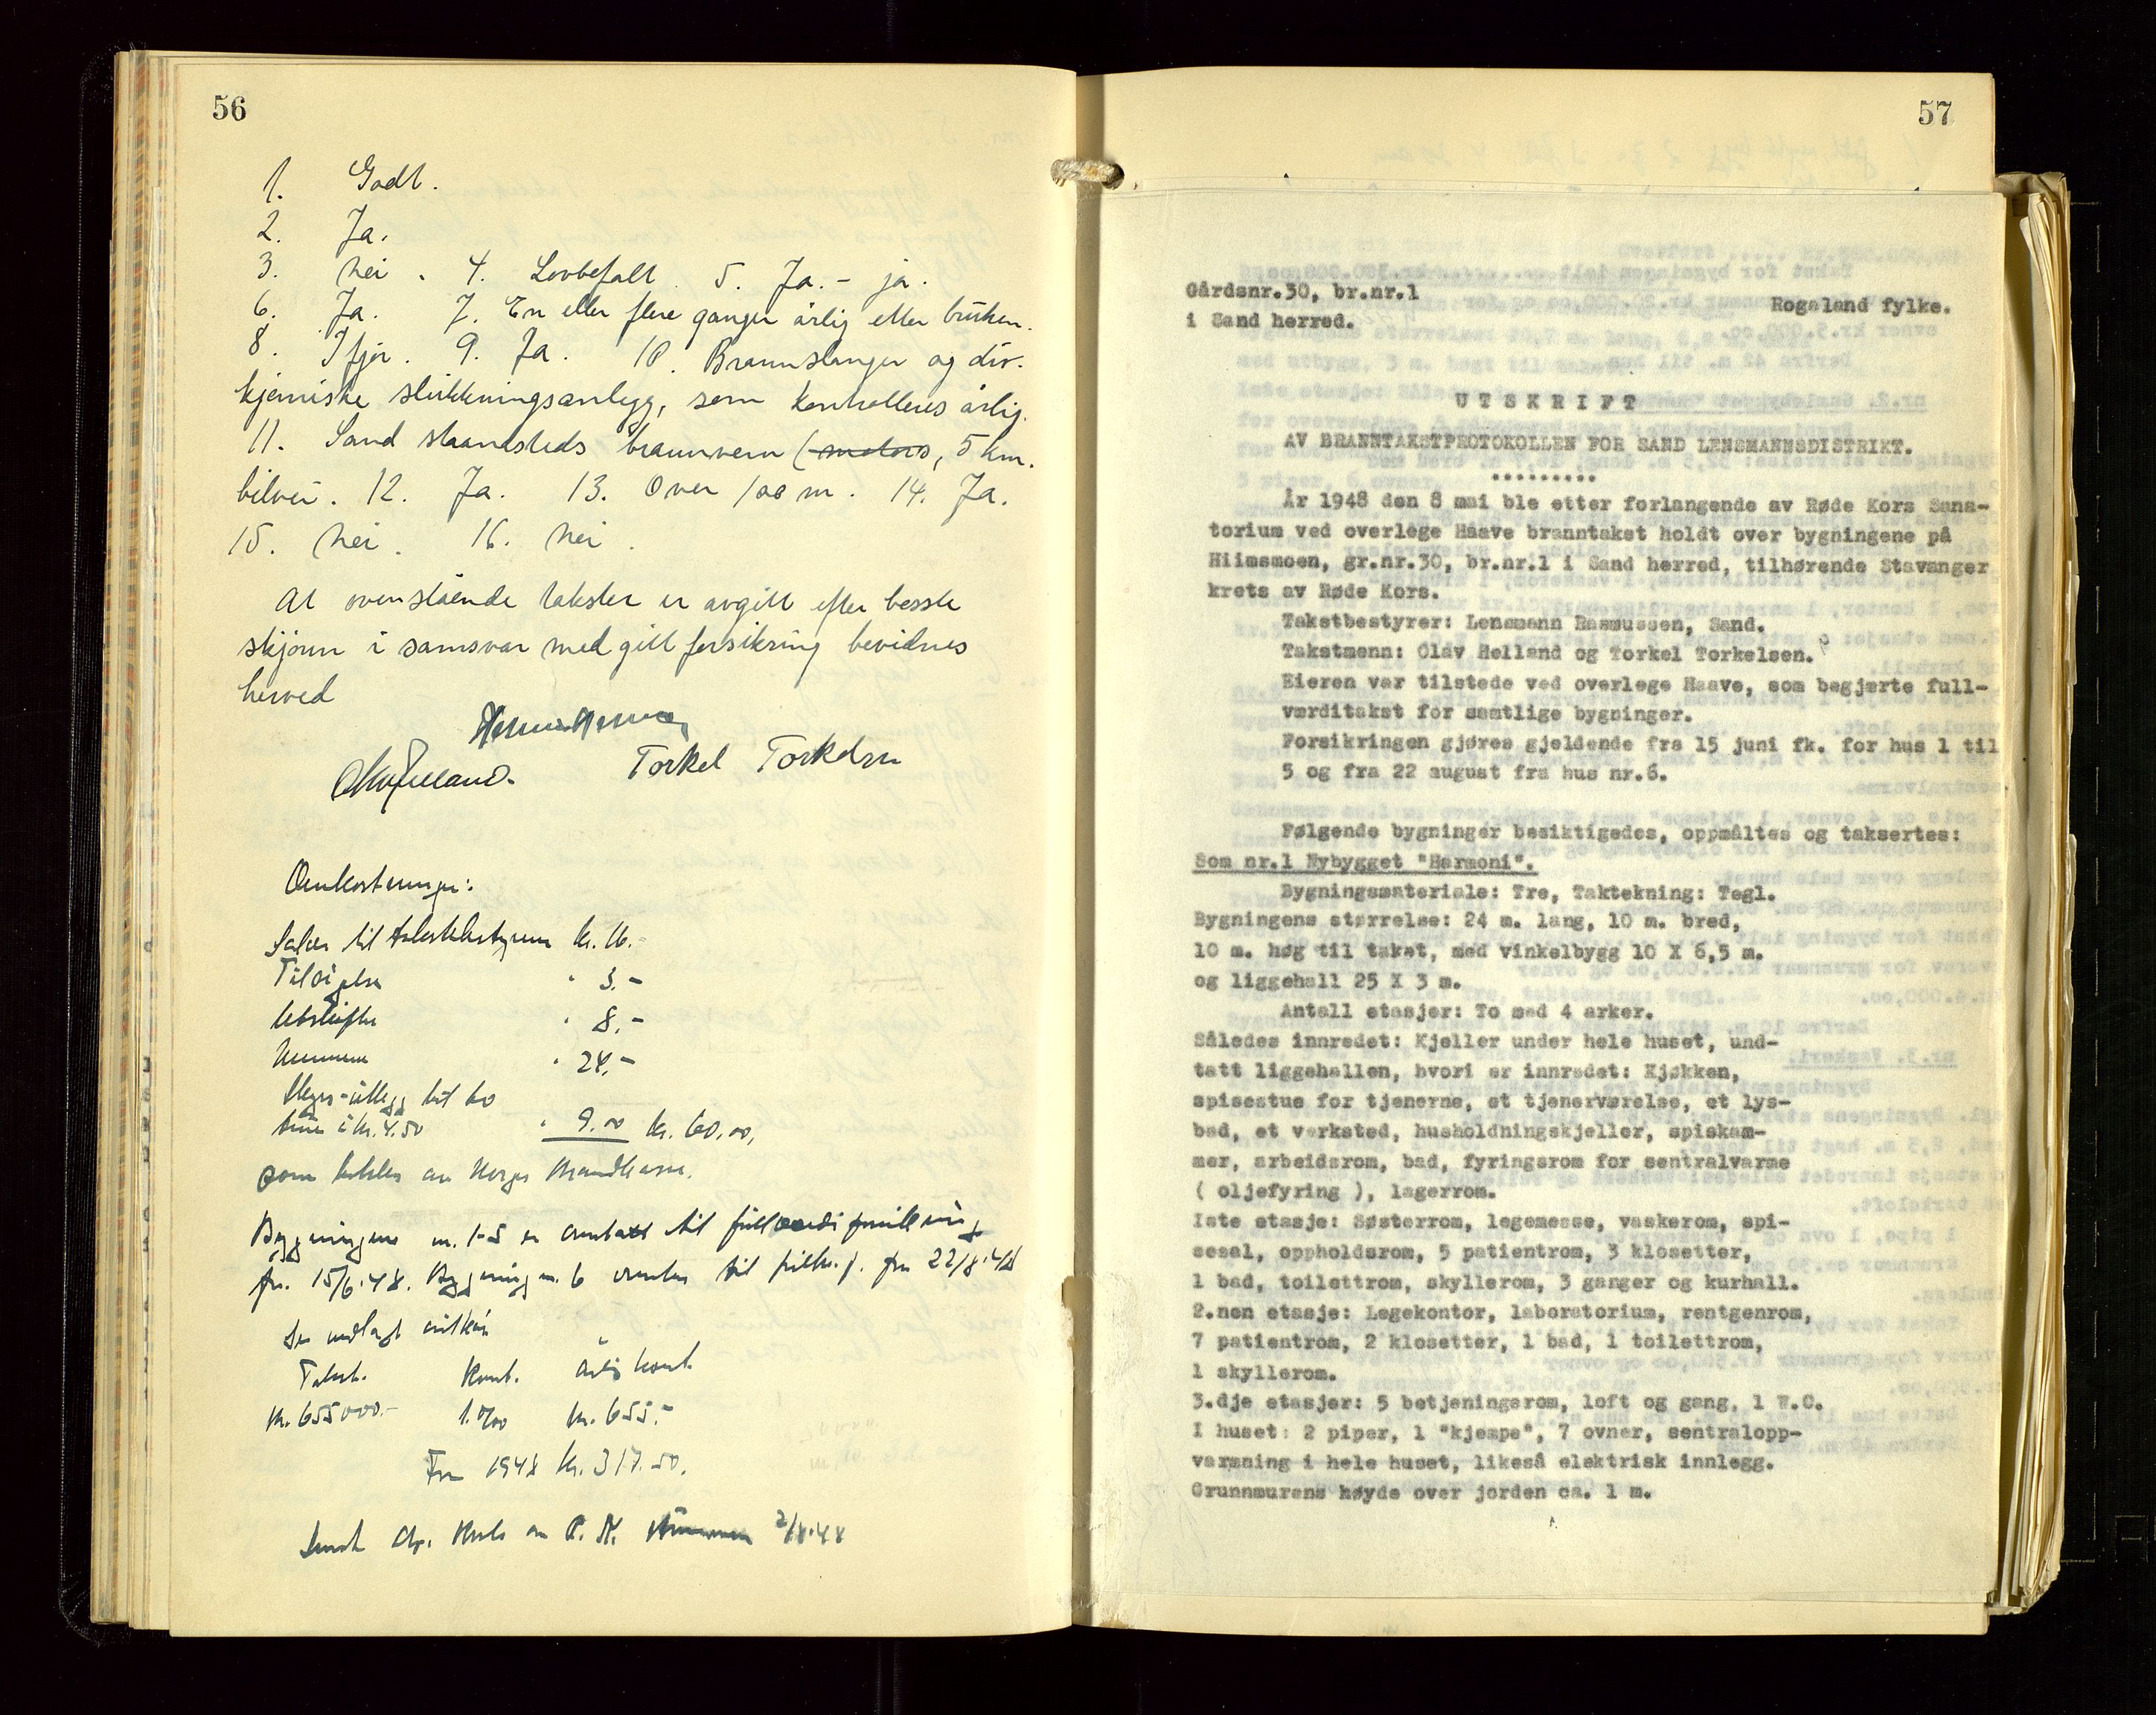 56
1. Godt.
2. Ja.
3. Nei. 4. Lovbefalt. 5. Ja. - ja.
6. Ja. 7. En eller flere ganger årlig etter bruken.
8. Ifjor. 9. Ja. 10. Brannslanger og div.
kjemiske slukkningsanlegg, som kontrolleres årlig.
11. Sand strandsteds brannvern (motors, 5 km.
bilvei. 12. Ja. 13. Over 100 m. 14. Ja.
15. Nei. 16. Nei.
At ovenstående takster er avgitt efter beste
skjønn i samsvar med gitt forsikring bevidnes
herved
Torkel Torkelsen
Omkostninger:
til takstbestyreren kr. 16.-
" 3.-
" 8.-
" 24.-
til to
à kr. 4.50 " 9.00 kr. 60.00,
som av Norges Brandkasse.
Bygningene nr. 1-5 er til
fra 15/6.48. Bygning nr. 6 til fra 22/8.48
Takst. Kont. Årlig kont.
Kr. 655000.- 1 o/oo kr. 655.-
For 1948 kr. 317.50.
2/8.48
57
Gårdsnr.30, br.nr.1
Rogaland fylke.
i Sand herred.
U T S K R I F T
AV BRANNTAKSTPROTOKOLLEN FOR SAND LENSMANNSDISTRIKT.
.........
År 1948 den 8 mai ble etter forlangende av Røde Kors Sana-
torium ved overlege Haave branntakst holdt over bygningene på
Hiimsmoen, gr.nr.30, br.nr.1 i Sand herred, tilhørende Stavanger
krets av Røde Kors.
Takstbestyrer: Lensmann Rasmussen, Sand.
Takstmenn: Olav Helland og Torkel Torkelsen.
Eieren var tilstede ved overlege Haave, som begjærte full-
værditakst for samtlige bygninger.
Forsikringen gjøres gjeldende fra 15 juni fk. for hus 1 til
5 og fra 22 august fra hus nr.6.
Følgende bygninger besiktigedes, oppmåltes og taksertes:
Som nr.1 Nybygget "Harmoni".
Bygningsmateriale: Tre, Taktekning: Tegl.
Bygningens størrelse: 24 m. lang, 10 m. bred,
10 m. høg til taket, med vinkelbygg 10 X 6,5 m.
og liggehall 25 X 3 m.
Antall etasjer: To med 4 arker.
Således innredet: Kjeller under hele huset, und-
tatt liggehallen, hvori er innredet: Kjøkken,
spisestue for tjenerne, et tjenerværelse, et lys-
bad, et verksted, husholdningskjeller, spiskam-
mer, arbeidsrom, bad, fyringsrom for sentralvarme
( oljefyring ), lagerrom.
Iste etasje: Søsterrom, legemesse, vaskerom, spi-
sesal, oppholdsrom, 5 patientrom, 3 klosetter,
1 bad, toilettrom, skyllerom, 3 ganger og kurhall.
2.nen etasje: Legekontor, laboratorium, rentgenrom,
7 patientrom, 2 klosetter, 1 bad, 1 toilettrom,
1 skyllerom.
3.dje etasjer: 5 betjeningsrom, loft og gang, 1 W.C.
I huset: 2 piper, 1 "kjempe", 7 ovner, sentralopp-
varmning i hele huset, likeså elektrisk innlegg.
Grunnmurens høyde over jorden ca. 1 m.